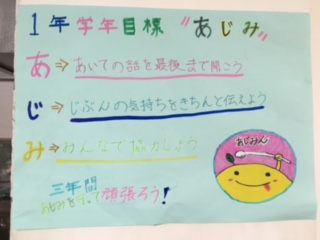 1年学年目標 "あじみ"
あ⇒あいての話を最後まで聞こう
じ⇒じぶんの気持ちをきちんと伝えよう
み⇒みんなで協力しよう
あじみん
三年間
あじみを守って頑張ろう!